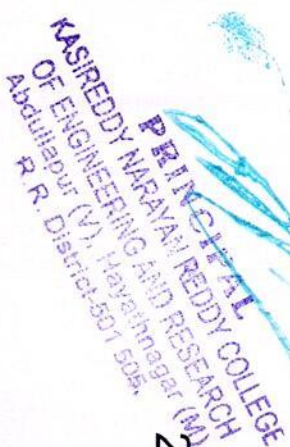 PRINCIPAL
KASIREDDY NARAYAN REDDY COLLEGE
OF ENGINEERING AND RESEARCH
Abdullapur (V), Hayathnagar (M)
R.R. District-501 505.
2